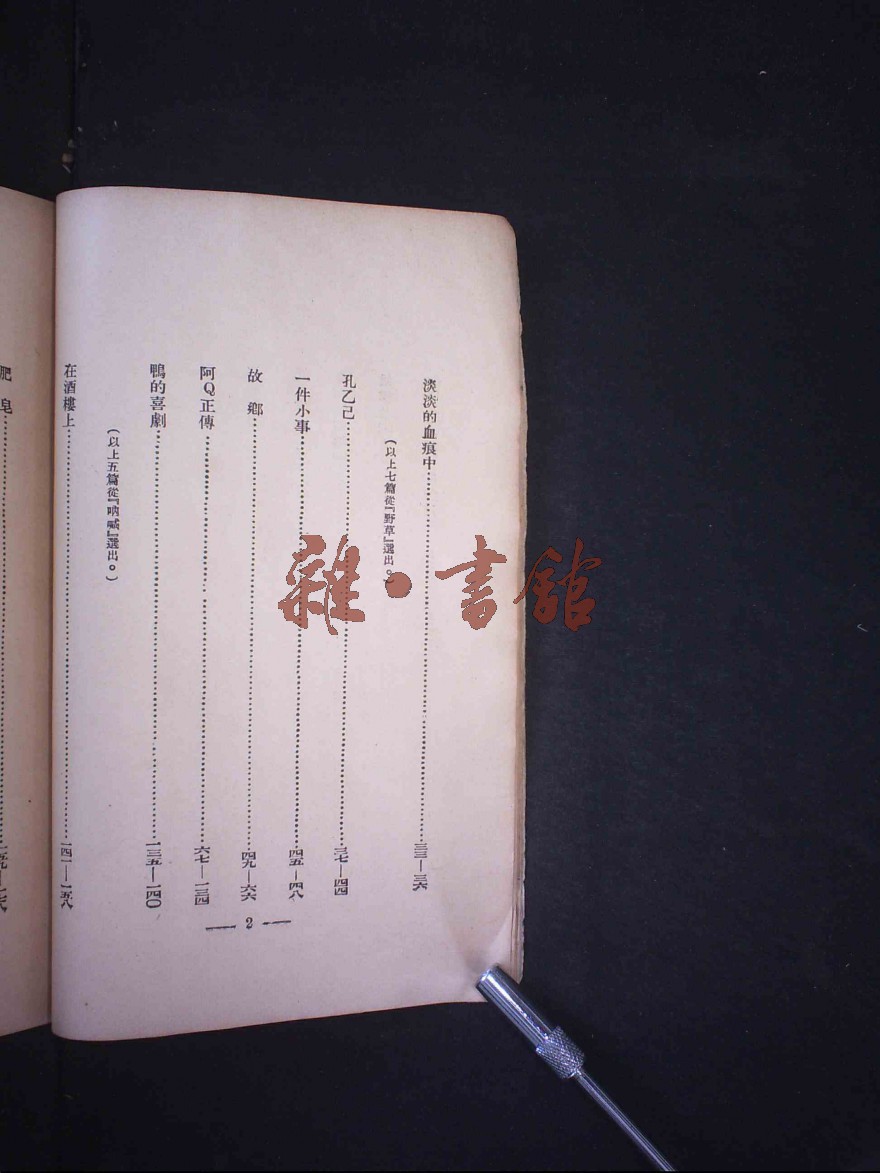 淡淡的血痕中……三三—三六
（以上七篇從『野草』選出。）
孔乙己……三七—四四
一件小事……四五—四八
故　鄉……四九—六六
阿Q正傳……六七—一三四
鴨的喜劇……一三五—一四〇
（以上五篇從『吶喊』選出。）
在酒樓上……一四一—一五八
肥　皂……一五九—一七八
— 2 —
雜·書館